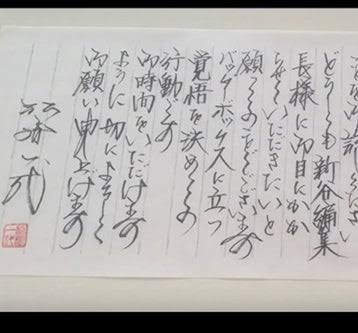 どうしても新谷編集
長様に御目にかか
らせていただきたいと
願ってのことでございます
バッターボックスに立つ
覚悟を決めての
行動です
御時間をいただけます
ように切によろしく
御願い申し上げます